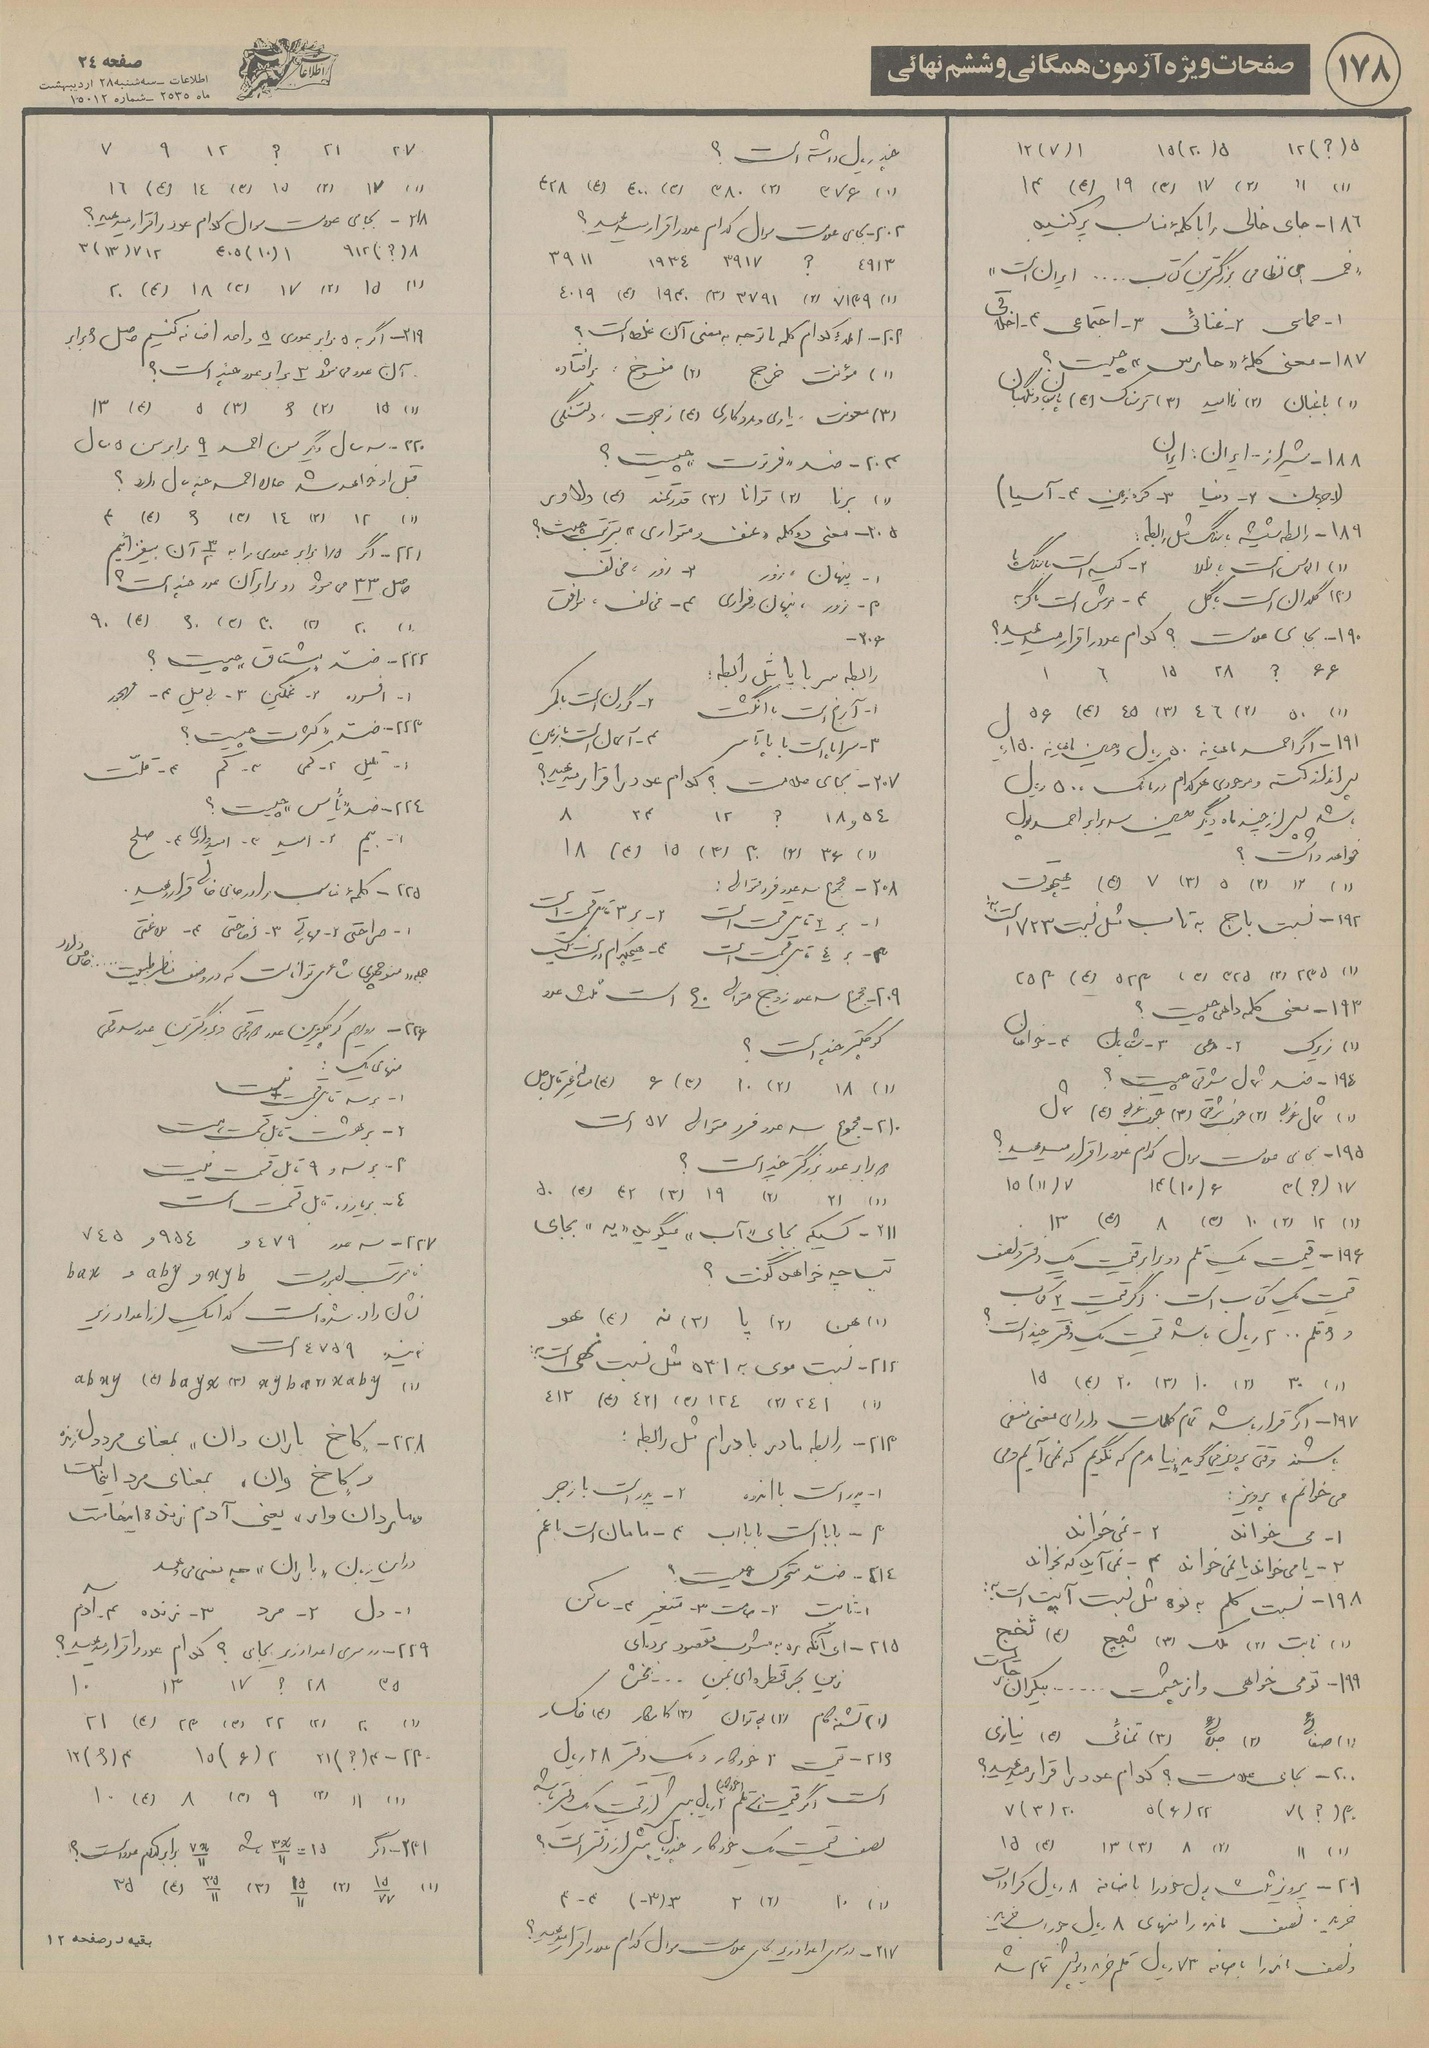 ۱۷۸
صفحات ویژه آزمون همگانی و ششم نهائی
اطلاعات
صفحه ۲۴
اطلاعات ــ سه‌شنبه ۲۸ اردیبهشت
ماه ۲۵۳۵ ــ شماره ۱۵۰۱۲
۵(?)۱۲ ۵(۲۰)۱۵ ۱(۷)۱۲
۱) ۱۱ ۲) ۱۷ ۳) ۱۹ ۴) ۱۴
۱۸۶- جای خالی را با کلمهٔ مناسب پر کنید
نظامی بزرگترین کتاب .... ایران است»
۱- حماسی ۲- غنائی ۳- اجتماعی ۴- اخلاقی
۱۸۷- معنی کلمهٔ «حارس» چیست؟
۱) باغبان ۲) ناامید ۳) ترسناک ۴) پاسبان و نگهبان
۱۸۸- شیراز - ایران : ایران
(۱- جهان ۲- دنیا ۳- کره زمین ۴- آسیا)
۱۸۹- رابطه شیشه با سنگ مثل رابطه:
۱) الماس است با طلا ۲- کیسه است با سنگ
۳) گلدان است با گل ۴- موش است با گربه
۱۹۰- بجای علامت ؟ کدام عدد را قرار میدهید؟
۶۶ ? ۲۸ ۱۵ ۶ ۱
۱) ۵۰ ۲) ۴۶ ۳) ۴۵ ۴) ۵۶
۱۹۱- اگر احمد ماهیانه ۵۰ ریال و حسن ماهیانه ۱۵۰ ریال
پس‌انداز کنند و موجودی هر کدام در بانک ۵۰۰ ریال
باشد پس از چند ماه دیگر حسن سه برابر احمد پول
خواهد داشت؟
۱) ۱۲ ۲) ۵ ۳) ۷ ۴) هیچوقت
۱۹۲- نسبت باج به تاب مثل نسبت ۷۲۳ است به:
۱) ۲۳۵ ۲) ۳۲۵ ۳) ۵۲۳ ۴) ۲۵۳
۱۹۳- معنی کلمه داهی چیست؟
۱) زیرک ۲- ۳- شتابان ۴- خواهان
۱۹۴- ضد شمال شرقی چیست؟
۱) شمال غربی ۲) جنوب شرقی ۳) جنوب غربی ۴) شمال
۱۹۵- بجای علامت سوال کدام عدد را قرار میدهید؟
۱۷(?)۳ ۶(۱۰)۱۴ ۷(۱۱)۱۵
۱) ۱۲ ۲) ۱۰ ۳) ۸ ۴) ۱۳
۱۹۶- قیمت یک قلم دو برابر قیمت یک دفتر و نصف
قیمت یک کتاب است. اگر قیمت ۲ کتاب
و ۶ قلم ۲۰۰ ریال باشد قیمت یک دفتر چند است؟
۱) ۳۰ ۲) ۱۰ ۳) ۲۰ ۴) ۱۵
۱۹۷- اگر قرار باشد تمام کلمات دارای معنی منفی
باشند وقتی پرویز می‌گوید نیامدم که نگویم که نمی‌آیم ومی
می‌خوانم» پرویز:
۱- می‌خواند ۲- نمی‌خواند
۳- یا می‌خواند یا نمی‌خواند ۴- نمی‌آید که بخواند
۱۹۸- نسبت کلم به نوه مثل نسبت آیت است به:
۱) ثابت ۲) ملک ۳) ثجج ۴) ثخج
۱۹۹- تو می خواهی و از چشمت ..... بیکران
۱) ۲) ۳) تمنائی ۴) نیازی
۲۰۰- بجای علامت ؟ کدام عدد را قرار میدهید؟
۳۰(?)۷ ۲۲(۶)۵ ۲۰(۳)۷
۱) ۱۱ ۲) ۸ ۳) ۱۳ ۴) ۱۵
۲۰۱- پرویز ثلث پول خود را باضافه ۸ ریال کراوات
خرید. نصف مانده را منهای ۸ ریال جوراب خرید
و نصف مانده را باضافه ۷۳ ریال قلم خرید و پولش تمام شد
چند ریال داشته است؟
۱) ۳۷۶ ۲) ۳۸۰ ۳) ۴۰۰ ۴) ۴۲۸
۲۰۲- بجای علامت سوال کدام عدد را قرار میدهید؟
۴۹۱۳ ? ۳۹۱۷ ۱۹۳۴ ۳۹۱۱
۱) ۷۱۴۹ ۲) ۳۷۹۱ ۳) ۱۹۴۰ ۴) ۴۰۱۹
۲۰۳- املاء کدام کلمه با توجه به معنی آن غلط است؟
۱) مؤنت خرج ۲) منسوخ : برافتاده
۳) معونت ، یاری و مددکاری ۴) زجرت ، دلتنگی
۲۰۴- ضد «فرتوت» چیست؟
۱) برنا ۲) توانا ۳) قدرتمند ۴) دلاور
۲۰۵- معنی دو کلمه «عنف و متواری» بترتیب چیست؟
۱- پنهان ، زور ۲- زور ، مخالف
۳- زور ، پنهان و فراری ۴- مخالف ، موافق
۲۰۶-
رابطه سر با پا مثل رابطه:
۱- آرنج است با انگشت ۲- گردن است با کمر
۳- سراپا است با ۴- آسمان است با زمین
۲۰۷- بجای علامت ؟ کدام عدد را قرار میدهید؟
۵۴ و ۱۸ ? ۱۲ ۲۴ ۸
۱) ۳۶ ۲) ۳۰ ۳) ۱۵ ۴) ۱۸
۲۰۸- مجموع سه عدد فرد متوالی:
۱- بر ۲ قابل قسمت است ۲- بر ۳ قابل قسمت است
۳- بر ۴ قابل قسمت است ۴- هیچکدام درست نیست
۲۰۹- مجموع سه عدد زوج متوالی ۶۰ است ثلث عدد
کوچکتر چند است؟
۱) ۱۸ ۲) ۱۰ ۳) ۶ ۴) مسأله غیر قابل حل
۲۱۰- مجموع سه عدد فرد متوالی ۵۷ است
برابر عدد بزرگتر چند است؟
۱) ۲۱ ۲) ۱۹ ۳) ۴۲ ۴) ۵۰
۲۱۱- کسیکه بجای «آب» میگوید «یه» بجای
تب چه خواهد گفت؟
۱) هن ۲) پا ۳) نه ۴) هو
۲۱۲- نسبت موی به ۵۳۱ مثل نسبت است به:
۱) ۲۴۱ ۲) ۱۲۴ ۳) ۴۲۱ ۴) ۴۱۲
۲۱۳- رابطه مادر با درام مثل رابطه:
۱- پدر است با اندوه ۲- پدر است با زجر
۳- بابا است با باب ۴- مامان است با غم
۲۱۴- ضد متحرک چیست؟
۱- ثابت ۲- ۳- متغیر ۴- ساکن
۲۱۵- ای آنکه ره به مشرب مقصود برده‌ای
زین بحر قطره‌ای بمن .... بخش
۱) تشنه کام ۲) ۳) کامکار ۴) خاکسار
۲۱۶- قیمت ۲ خودکار و یک دفتر ۲۸ ریال
است اگر قیمت ریال بیش از قیمت یک دفتر باشد
نصف قیمت یک خودکار چند ریال بیش از دفتر است؟
۱) ۱۰ ۲) ۲ ۳) (۳-) ۴- ۴
۲۱۷- در سری اعداد زیر بجای علامت سوال کدام عدد را قرار میدهید؟
۲۷ ۲۱ ? ۱۲ ۹ ۷
۱) ۱۷ ۲) ۱۵ ۳) ۱۴ ۴) ۱۶
۲۱۸- بجای علامت سوال کدام عدد را قرار میدهید؟
۸(?)۹۱۲ ۱(۱۰)۴۰۵ ۳(۱۳)۷۱۲
۱) ۱۵ ۲) ۱۷ ۳) ۱۸ ۴) ۲۰
۲۱۹- اگر به ۵ برابر عددی ۵ واحد اضافه کنیم حاصل ۶ برابر
آن عدد می‌شود ۳ برابر عدد چند است؟
۱) ۱۵ ۲) ۶ ۳) ۵ ۴) ۱۳
۲۲۰- سه سال دیگر سن احمد ۹ برابر سن ۵ سال
قبل او خواهد شد حالا احمد چند سال دارد؟
۱) ۱۲ ۲) ۱۴ ۳) ۶ ۴) ۴
۲۲۱- اگر ۱/۵ برابر عددی را به ۳/۲ آن بیفزائیم
حاصل ۳۳ می‌شود دو برابر آن عدد چند است؟
۱) ۲۰ ۲) ۳۰ ۳) ۶۰ ۴) ۹۰
۲۲۲- ضد مشتاق چیست؟
۱- افسرده ۲- غمگین ۳- بی‌میل ۴- مهجور
۲۲۳- ضد «کثرت» چیست؟
۱- قلیل ۲- کمی ۳- کم ۴- قلّت
۲۲۴- ضد «یأس» چیست؟
۱- بیم ۲- امید ۳- امیدواری ۴- صلح
۲۲۵- کلمهٔ مناسب را در جای خالی قرار دهید.
۱- صراحتی ۲- مهارتی ۳- فصاحتی ۴- بلاغتی
منوچهری شاعری توانا است که در وصف مناظر طبیعت .... خاص دارد
۲۲۶- کوچکترین عدد دورقمی و بزرگترین عدد سه رقمی
منهای یک:
۱- بر سه قابل قسمت نیست
۲- بر هشت قابل قسمت است
۳- بر سه و ۹ قابل قسمت نیست
۴- بر یازده قابل قسمت است
۲۲۷- سه عدد ۴۷۹ و ۹۵۴ و ۷۴۵
نامرتب بصورت xyb و aby و bax
نشان داده شده است کدامیک از اعداد زیر
۴۷۵۹ است
۱) xaby ۲) xyba ۳) bayx ۴) abxy
۲۲۸- «کاخ باران دان» بمعنای مرد دل زنده
و «کاخ وان» بمعنای مرد اینجاست
«ماردان وار» یعنی آدم زنده اینجاست
در این زبان «باران» چه معنی می‌دهد
۱- دل ۲- مرد ۳- زنده ۴- آدم
۲۲۹- در سری اعداد زیر بجای ؟ کدام عدد را قرار میدهید؟
۳۵ ۲۸ ? ۱۷ ۱۳ ۱۰
۱) ۲۰ ۲) ۲۲ ۳) ۲۳ ۴) ۲۱
۲۳۰- ۳(?)۲۱ ۲(۶)۱۵ ۳(۶)۱۲
۱) ۱۱ ۲) ۹ ۳) ۸ ۴) ۱۰
۲۳۱- اگر ۳x/۱۱ = ۱۵ باشد ۷x/۱۱ برابر کدام عدد است؟
۱) ۱۵/۷۷ ۲) ۱۵/۱۱ ۳) ۳۵/۱۱ ۴) ۳۵
بقیه در صفحه ۱۲